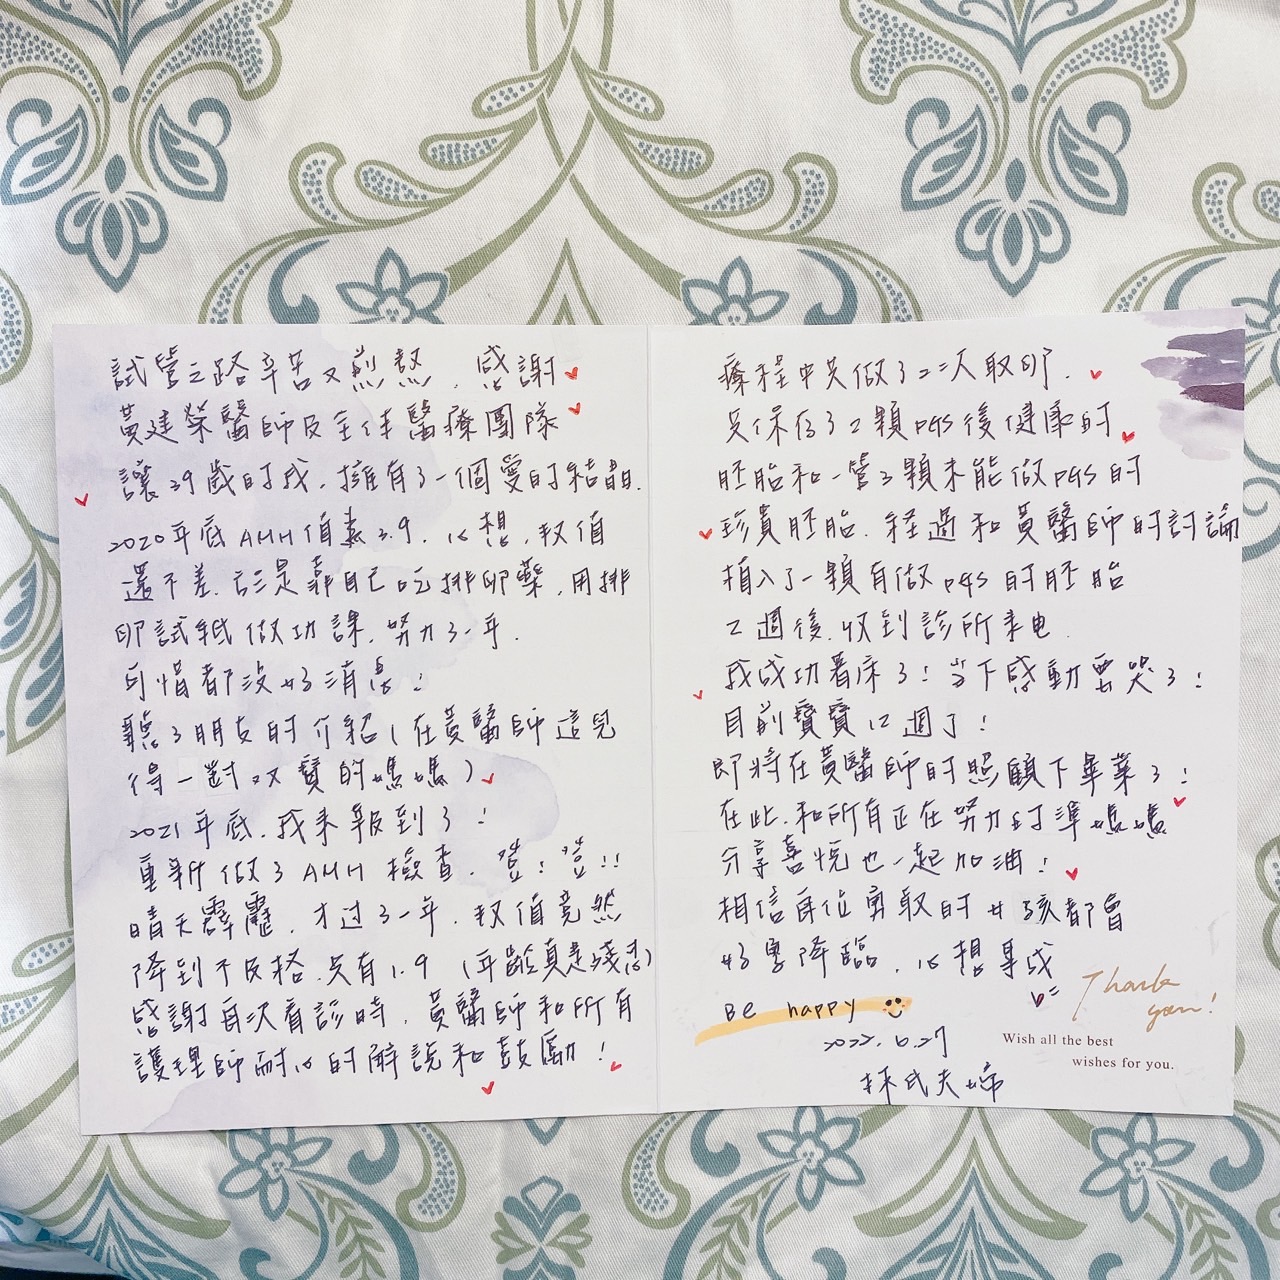 試管之路辛苦又煎熬，感謝
黃建榮醫師及全体醫療團隊
讓39歲的我，擁有了一個愛的結晶.
2020年底AMH值素3.9，心想，数值
還不差，於是靠自己吃排卵藥，用排
卵試紙做功課，努力了一年.
可惜都沒好消息！
聽了朋友的介紹（在黃醫師這兒
得一對双寶的媽媽）
2021年底，我來報到了！
重新做了AMH檢查，登！登!!
晴天霹靂，才过了一年，数值竟然
降到不及格，只有1.9（年齡真是殘忍）
感謝每次看診時，黃醫師和所有
護理師耐心的解說和鼓勵！
療程中共做了二次取卵，
只保存了2顆PGS後健康的
胚胎和一管3顆未能做PGS的
珍貴胚胎，經過和黃醫師的討論
植入了一顆有做PGS的胚胎
2週後，收到診所来电.
我成功着床了！当下感動要哭了！
目前寶寶12週了！
即將在黃醫師的照顧下畢業了！
在此，和所有正在努力的準媽媽
分享喜悅也一起加油！
相信每位勇敢的女孩都會
好孕降臨，心想事成
Be happy
2022.6.27
林氏夫婦
Thank
you!
Wish all the best
wishes for you.